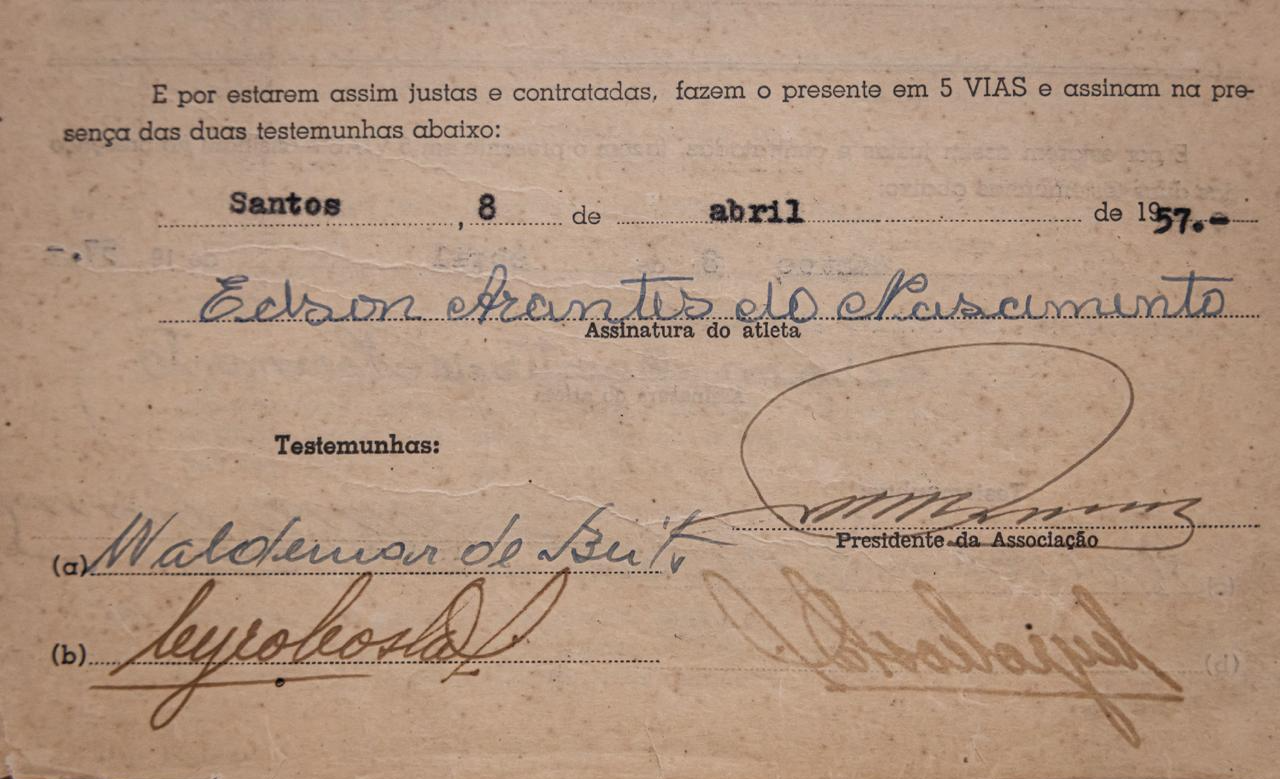 E por estarem assim justas e contratadas, fazem o presente em 5 VIAS e assinam na pre-
sença das duas testemunhas abaixo:
Santos, 8 de abril de 1957.-
Edson Arantes do Nascimento
Assinatura do atleta
Testemunhas:
Presidente da Associação
(a) Waldemar de Brit.
(b)